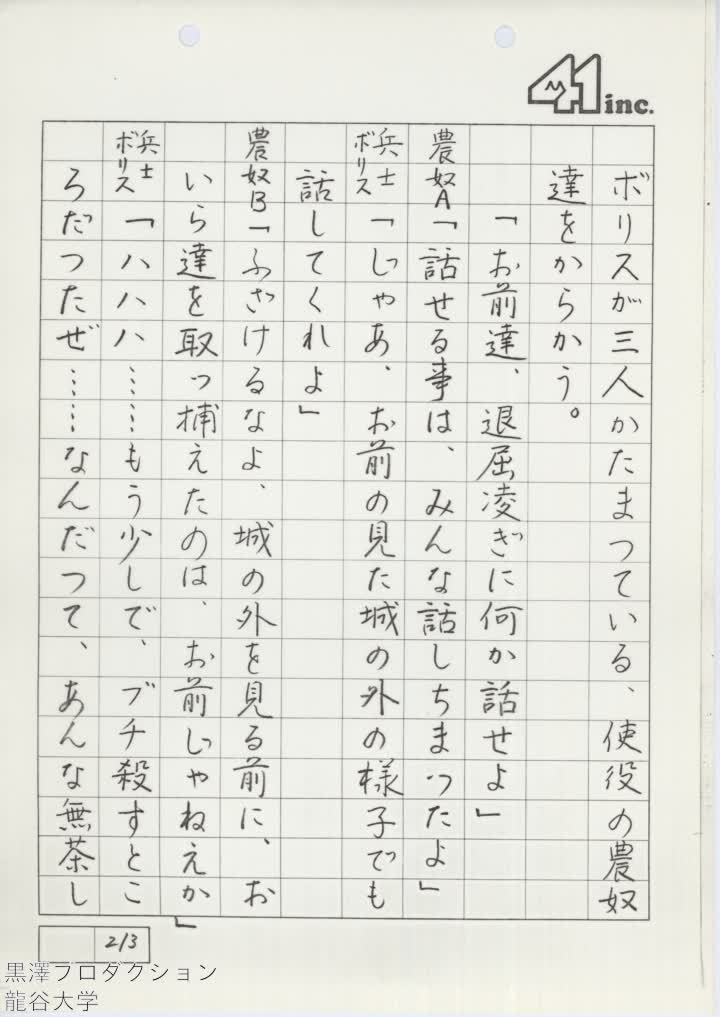 41 inc.
ボリスが三人かたまつている、使役の農奴
達をからかう。
「お前達、退屈凌ぎに何か話せよ」
農奴A「話せる事は、みんな話しちまつたよ」
兵士ボリス「じゃあ、お前の見た城の外の様子でも
話してくれよ」
農奴B「ふざけるなよ、城の外を見る前に、お
いら達を取っ捕えたのは、お前じゃねえか」
兵士ボリス「ハハハ……もう少しで、ブチ殺すとこ
ろだつたぜ……なんだつて、あんな無茶し
213
黒澤プロダクション
龍谷大学